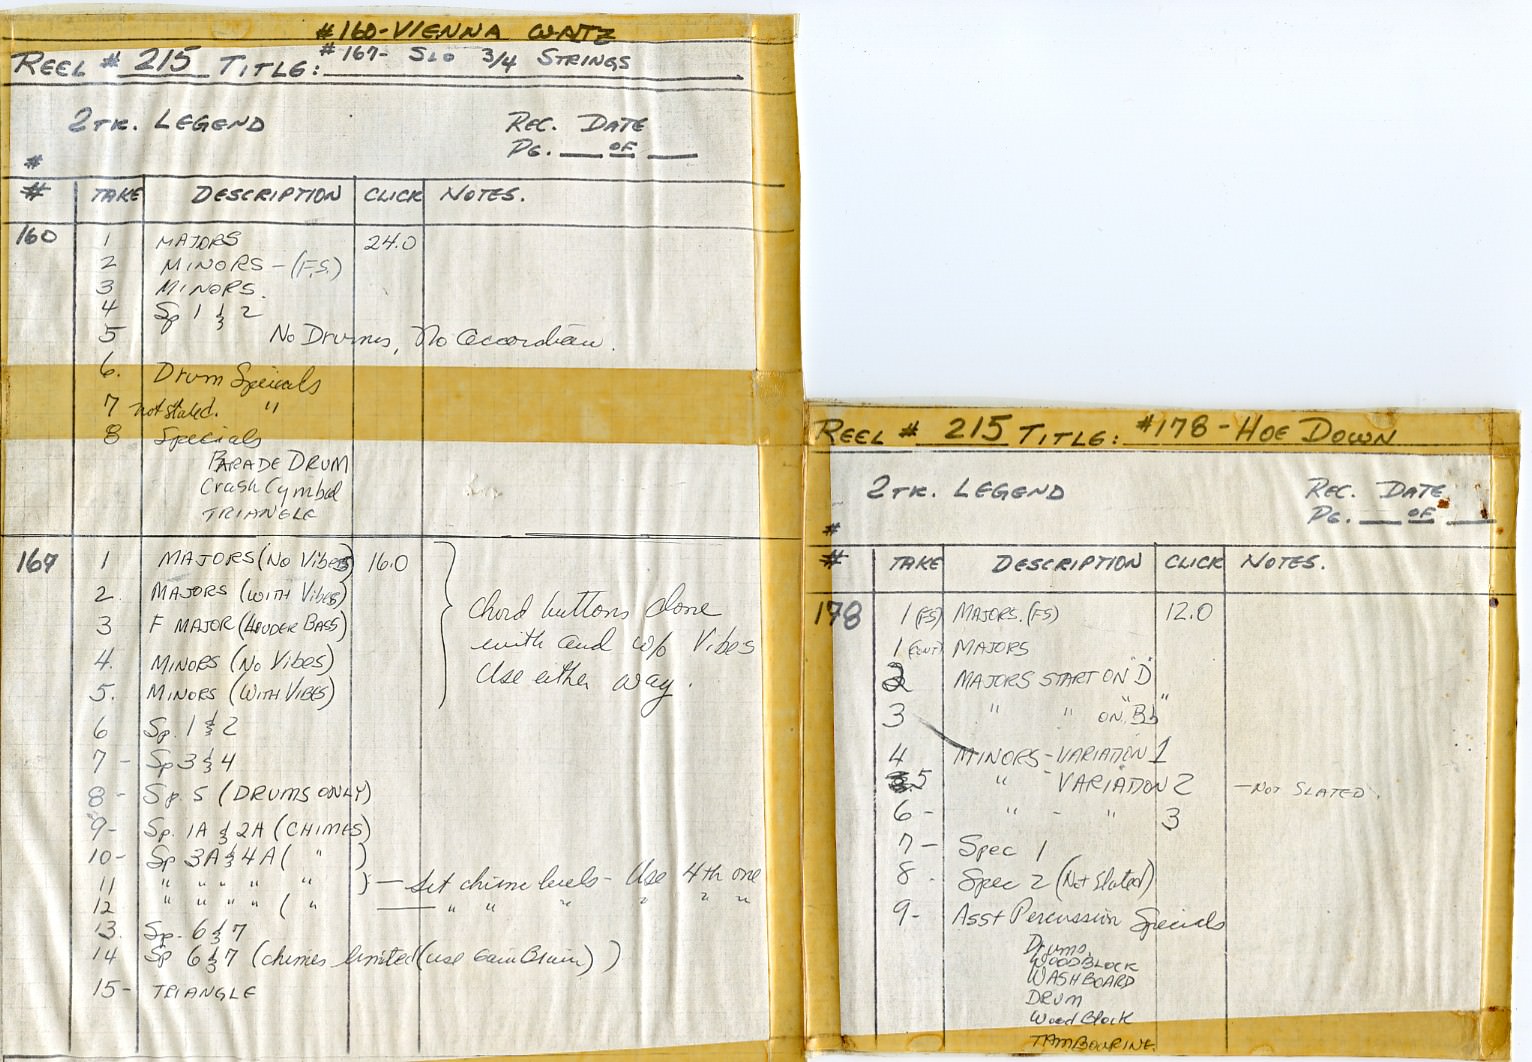 #160-VIENNA WATZ
REEL # 215 TITLE: #167- SLO 3/4 STRINGS
2TK. LEGEND REC. DATE
PG. ___ OF ___
#
# TAKE DESCRIPTION CLICK NOTES.
160 1 MAJORS 24.0
2 MINORS - (F.S.)
3 MINORS.
4 Sp 1 & 2
5 No Drums, No accordian.
6. Drum Specials
7 not slated. "
8 Specials
PARADE DRUM
Crash Cymbal
TRIANGLE
167 1 MAJORS (No Vibes) 16.0
2. MAJORS (WITH Vibes)
3 F MAJOR (LOUDER BASS)
4. MINORS (No Vibes)
5. MINORS (WITH VIBES)
chord buttons done
with and w/o Vibes
Use either way.
6 Sp. 1 & 2
7 - Sp 3 & 4
8 - Sp. 5 (DRUMS ONLY)
9- Sp. 1A & 2A (CHIMES)
10- Sp 3A & 4A ( " )
11 " " " " " } - Set chime levels - Use 4th one
12 " " " " ( " — " " " " " "
13. Sp. 6 & 7
14 Sp 6 & 7 (chimes limited (use Gain Brain) )
15- TRIANGLE
REEL # 215 TITLE: #178 - HOE DOWN
2TK. LEGEND REC. DATE
PG. ___ OF ___
#
# TAKE DESCRIPTION CLICK NOTES.
178 1 (FS) MAJORS. (FS) 12.0
1 MAJORS
2 MAJORS START ON "D"
3 " " ON "Bb"
4 MINORS - VARIATION 1
5 " VARIATION 2 - NOT SLATED.
6 - " - " 3
7 - Spec 1
8 - Spec 2 (Not Slated)
9- Asst Percussion Specials
Drums,
WOODBLOCK
WASHBOARD
DRUM
Wood Block
TAMBOURINE.